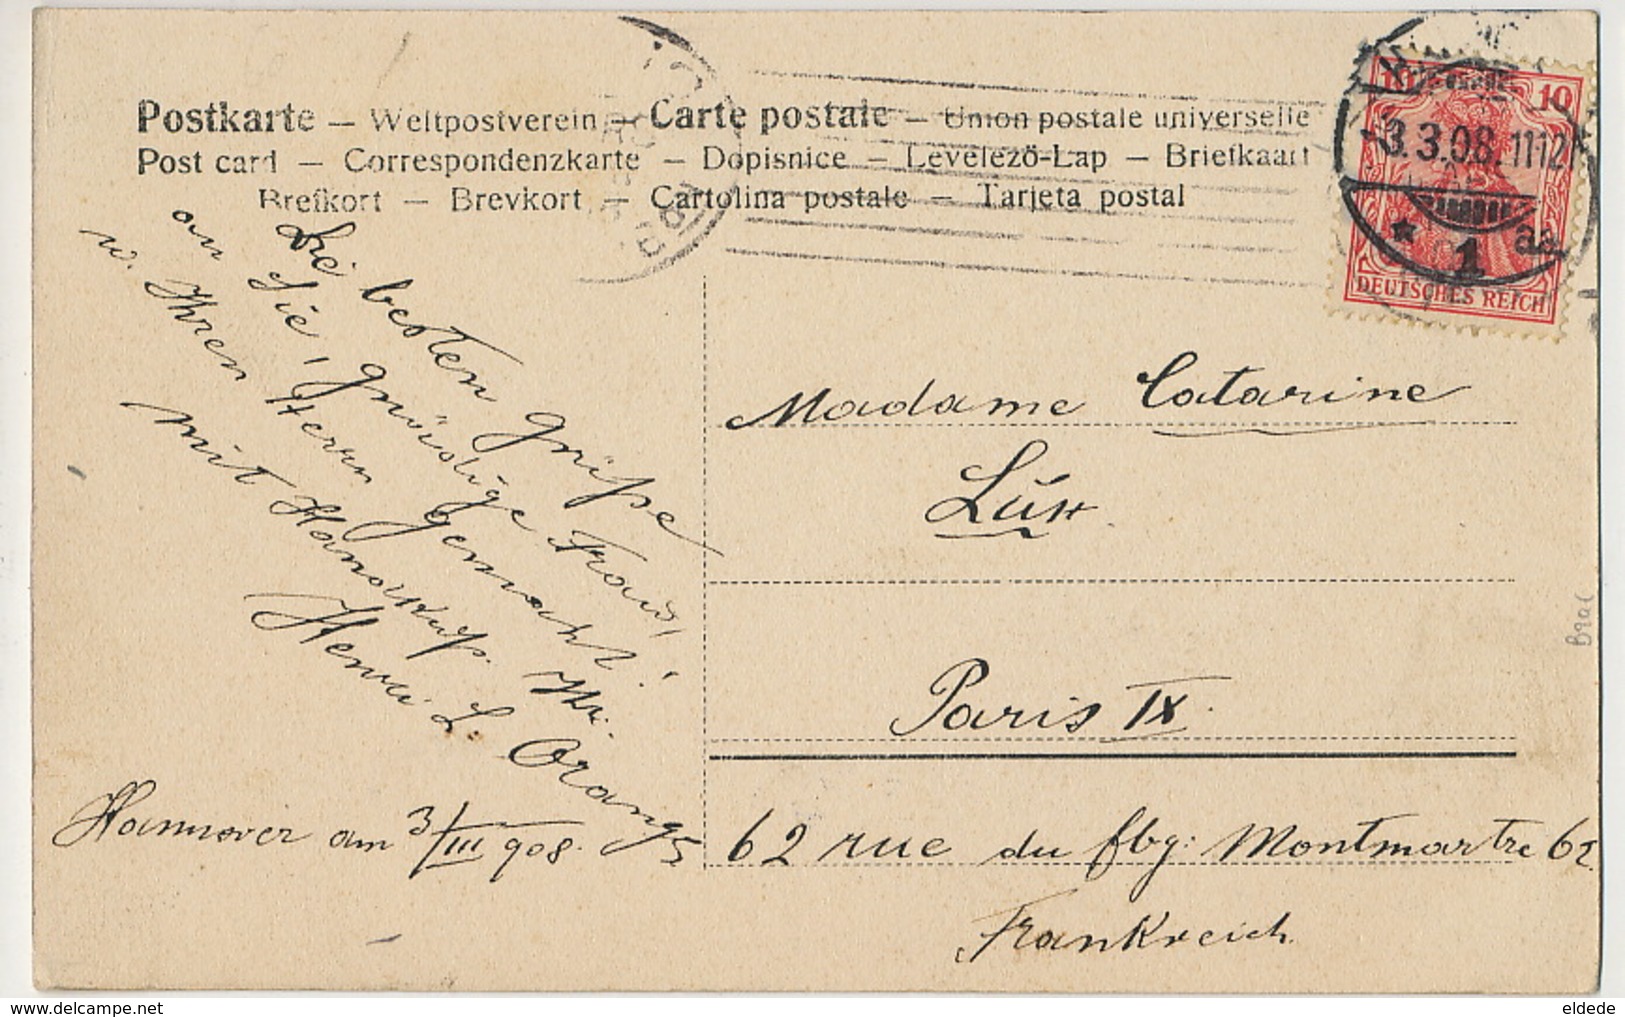 Postkarte — Weltpostverein — Carte postale — Union postale universelle
Post card — Correspondenzkarte — Dopisnice — Levelezö-Lap — Briefkaart
Brefkort — Brevkort — Cartolina postale — Tarjeta postal
10 10
3.3.08. 11-12
* 1 a
DEUTSCHES REICH
Die besten Grüße
an Sie, gnädige Frau,
u. Ihren Herrn Gemahl!
mit Handkuß. Ihr
Henri L.
Hannover am 3/III 908.
Madame Catarine
Paris IX.
62 rue du fbg: Montmartre 62
Frankreich
eldede